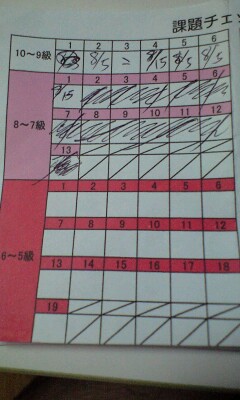 課題チェ
1 2 3 4 5 6
10〜9級 8/5 8/5 8/5
1 2 3 4 5 6
8/15
8〜7級
7 8 9 10 11 12
13
1 2 3 4 5 6
7 8 9 10 11 12
6〜5級
13 14 15 16 17 18
19